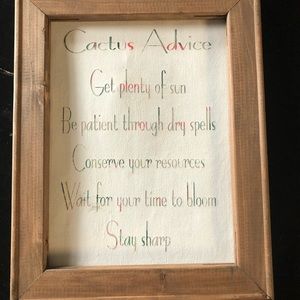 Cactus Advice
Get plenty of sun
Be patient through dry spells
Conserve your resources
Wait for your time to bloom
Stay sharp